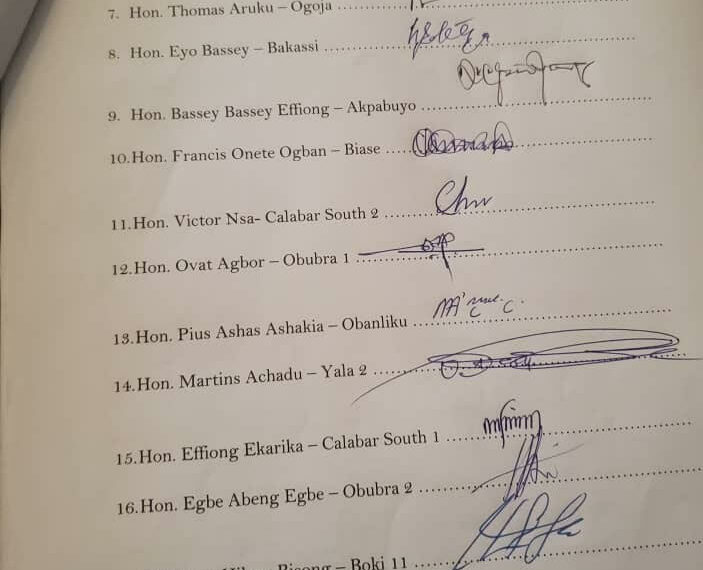 7. Hon. Thomas Aruku – Ogoja ............
8. Hon. Eyo Bassey – Bakassi ............
9. Hon. Bassey Bassey Effiong – Akpabuyo ............
10.Hon. Francis Onete Ogban – Biase ............
11.Hon. Victor Nsa- Calabar South 2 ............
12.Hon. Ovat Agbor – Obubra 1 ............
13.Hon. Pius Ashas Ashakia – Obanliku ............
14.Hon. Martins Achadu – Yala 2 ............
15.Hon. Effiong Ekarika – Calabar South 1 ............
16.Hon. Egbe Abeng Egbe – Obubra 2 ............
Bisong – Boki 11 ............